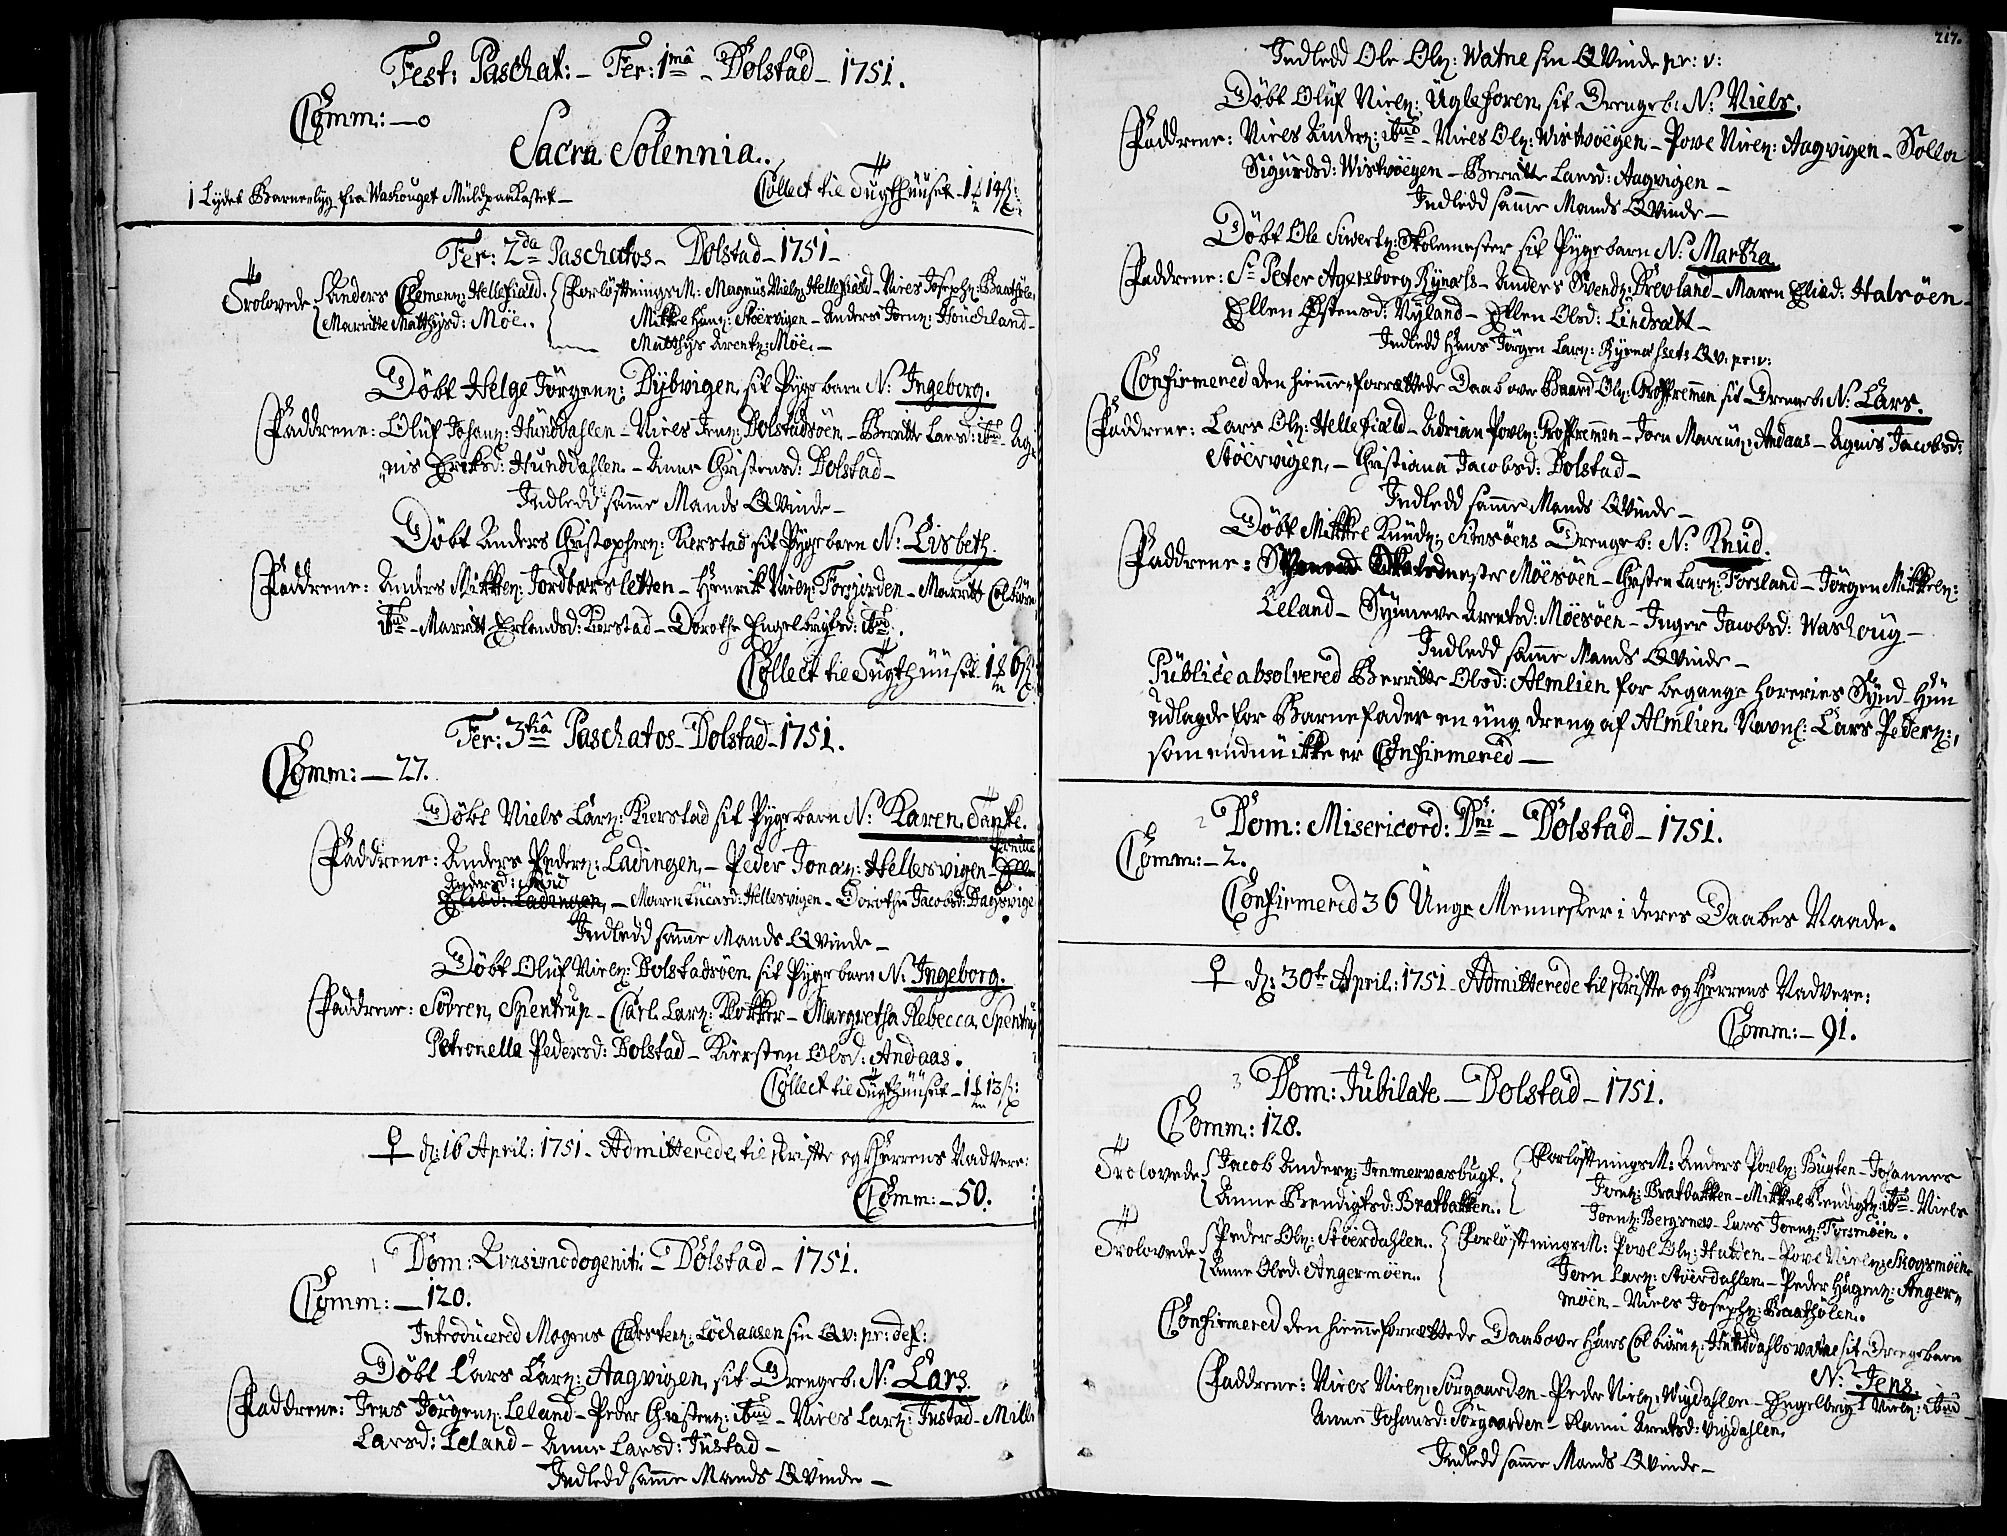 Fest: Paschat: – Fer: 1mâ – Dolstad – 1751.
Comm: – 0
Sacra Solennia.
Collect til Tugthuuset – 1 14
1 Lydet Barnelyg fra Washouget Muldpaakastet –
Fer: 2da Paschatos – Dolstad – 1751 –
Trolovede Anders Clemenz: Hellefiald. Forlöftnings M: Magnus Nielz: Hellefiæld – Niels Josephz: Baathöle,
Marritte Matthysd: Möe. Mikkel Hanz: Stöervigen – Anders Jonz: Houchland –
Matthys Arentz: Möe. –
Döbt Helge Jörgenz: Dybvigen sit Pigebarn N: Ingeborg.
Faddrene: Oluf Johanz: Hunddahlen – Niels Jenz: Dolstadsöen – Berritte Larsd: ibid – Ag-
nis Eriksd: Hunddahlen – Anne Christensd: Dolstad –
Indledd samme Mands Qvinde –
Döbt Anders Christopherz: Kierstad sit Pigebarn N: Lisbeth.
Faddrene: Anders Mikkelz: Jordbærsletten – Henrik Nielz: Forsjorden – Marritt Colbiörn
ibid – Marritt Erlandsd: Kierstad – Dorothe Engelbrigtsd: ibid.
Collect til Tugthuuset 1 6
Fer: 3tiâ Paschatos – Dolstad – 1751.
Comm: – 27.
Döbt Niels Larz: Kierstad sit Pigebarn N: Karen Tanke.
Faddrene: Anders Pederz: Ladingen – Peder Jonaz: Hellesvigen – Pernille
Andersd: ibid – Maren Lucasd: Hellesvigen – Dorothe Jacobsd: Dagsvige
Indledd samme Mands Qvinde –
Döbt Oluf Nielz: Dolstadsöen sit Pigebarn N: Ingeborg.
Faddrene: Sövren Spentrup – Carl Larz: Klokker – Margretha Rebecca Spentrup
Petronella Pedersd: Dolstad – Kiersten Olsd: Andaas.
Collect til Tugthuuset – 1 13
d: 16 April: 1751 – Admitterede til skrifte og Herrens Nadvere:
Comm: – 50.
1 Dom: Qvasimodogeniti – Dolstad – 1751.
Comm: – 120.
Introducered Mogens Carstenz: Löchausen sin Qv: pr: def:
Döbt Lars Larz: Aagvigen sit Drengeb: N: Lars.
Faddrene: Jens Jörgenz: Leland – Peder Christenz: ibid – Niels Larz: Justad – Mille
Larsd: Leland – Anne Larsd: Justad –
Indledd samme Mands Qvinde –
217.
Indledd Ole Olz: Watne sin Qvinde pr: v:
Döbt Oluf Nielz: Uglehoren sit Drengeb: N: Niels.
Faddrene: Niels Anderz: ibid – Niels Olz: Wistvöegen – Povl Nielz: Aagvigen – Sollo
Sigurdsd: Wistvöegen – Berritte Larsd: Aagvigen –
Indledd samme Mands Qvinde –
Döbt Ole Siwertz: Skolemester sit Pigebarn N: Martha.
Faddrene: Sr Peter Agersborg Rynæss – Anders Svendz: Brevland – Maren Eliæd: Halsöen –
Ellen Östensd: Nyland – Ellen Olsd: Lindsæt –
Indledd Hans Jörgen Larz: Rynæssets Qv: pr: v:
Confirmered den hiemmeforrettede Daab over Baard Olz: Proffremmen sit Drengeb: N: Lars.
Faddrene: Lars Olz: Hellefiæld – Adrian Povlz: Proffremmen – Jörn Marcuz: Andaas – Agnis Jacobsd:
Stöervigen – Christiana Jacobsd: Dolstad –
Indledd samme Mands Qvinde –
Döbt Mikkel Knudz: Simsöens Drengeb: N: Knud.
Faddrene: Skolemester Möesöen – Christen Larz: Forsland – Jörgen Mikkelz:
Leland – Synneve Arentsd: Möesöen – Inger Jacobsd: Washoug –
Indledd samme Mands Qvinde –
Publicè absolvered Berritte Olsd: Almlien for begange Horeries Synd. Hun
udlagde for Barnefader en ung dreng af Almlien Navnl: Lars Pederz:,
som endnu ikke er Confirmered –
2 Dom: Misericord: Dni – Dolstad – 1751.
Comm: – 2.
Confirmered 36 Unge Mennesker i deres Daabes Naade.
d: 30te April: 1751 – Admitterede til skrifte og Herrens Nadvere:
Comm: – 91.
3 Dom: Jubilate – Dolstad – 1751.
Comm: 128.
Trolovede Jacob Anderz: Inmervasbugt. Forlöftnings M: Anders Povlz: Bugten – Johannes
Anne Bendigtsd: Bratbakken. Jonz: Bratbakken – Mikkel Bendigtz: ibid – Niels
Joenz: Bergsnev – Lars Joenz: Forsmöen.
Trolovede Peder Olz: Stöerdahlen. Forlöftnings M: Povl Olz: Hutden – Povl Nielz: Skogsmöen
Anne Olsd: Angermöen. Jörn Larz: Stöerdahlen – Peder Hagenz: Anger-
möen – Niels Josephz: Baathölen.
Confirmered den hiemmeforrettede Daab over Hans Colbiörnz: Hunddahlsvatne sit Drengebarn
N: Jens.
Faddrene: Niels Nielz: Sörgaarden – Peder Nielz: Wigdahlen – Engelbrigt Nielz: ibid –
Anne Johansd: Sörgaarden – Ranni Arentsd: Vigdahlen.
Indledd samme Mands Qvinde –